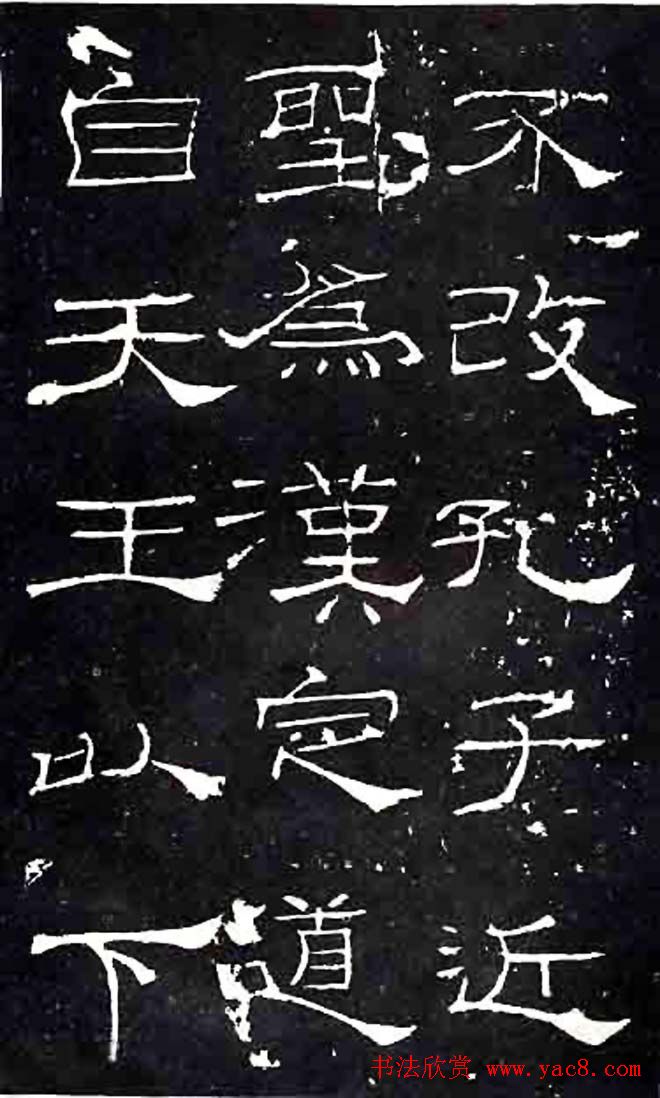 不改孔子近
聖爲漢定道
自天王以下
书法欣赏 www.yac8.com